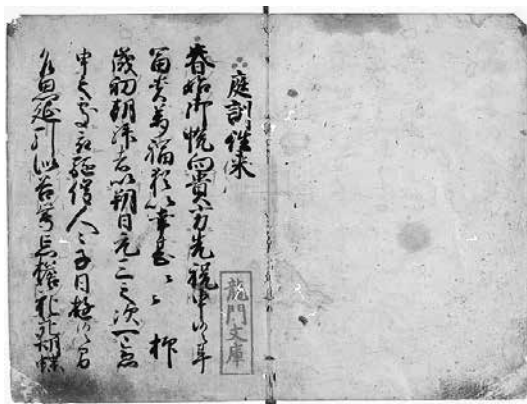 庭訓往来
春始御悦向貴方先祝申候訖
冨貴萬福猶以幸甚〻〻抑
歳初朝拝者以朔日元三之次可急
申之處被駈催人〻子日遊之間
乍思延引似谷鶯忘檐花苑胡蝶
龍門文庫